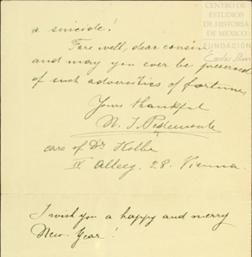 CENTRO DE
ESTUDIOS
DE HISTORIA
DE MEXICO
FUNDACIÓN
a suicide!
Farewell, dear cousin
and may you ever be preserved
of such adversities of fortune
Yours thankful
care of Dr Holler
IX Alserg. 28. Vienna.
I wish you a happy and merry
New Year!